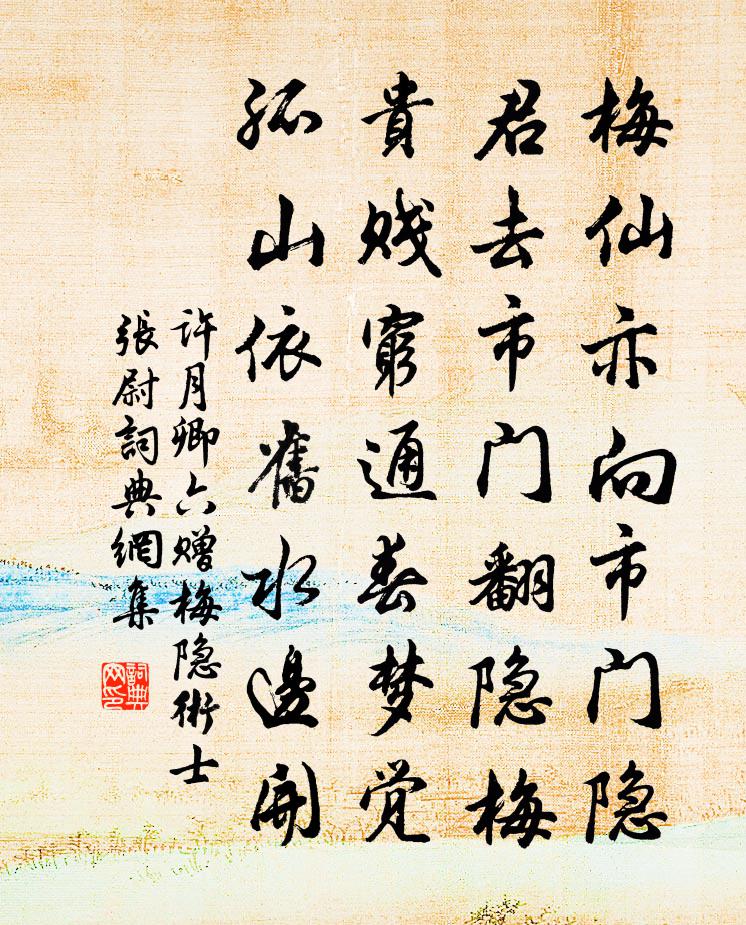 梅仙亦向市门隐
君去市门翻隐梅
貴贱窮通春梦觉
孤山依舊水邊開
許月卿六赠梅隐術士
張尉詞典網集
詞典网印